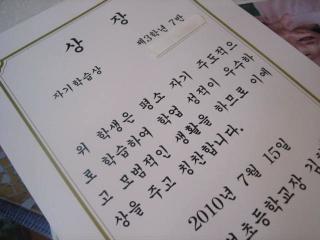 상 장
제3학년 7반
자기학습상
위 학생은 평소 자기 주도적으
로 학습하여 학업 성적이 우수하
고 모범적인 생활을 하므로 이에
상을 주고 칭찬합니다.
2010년 7월 15일
초등학교장 김